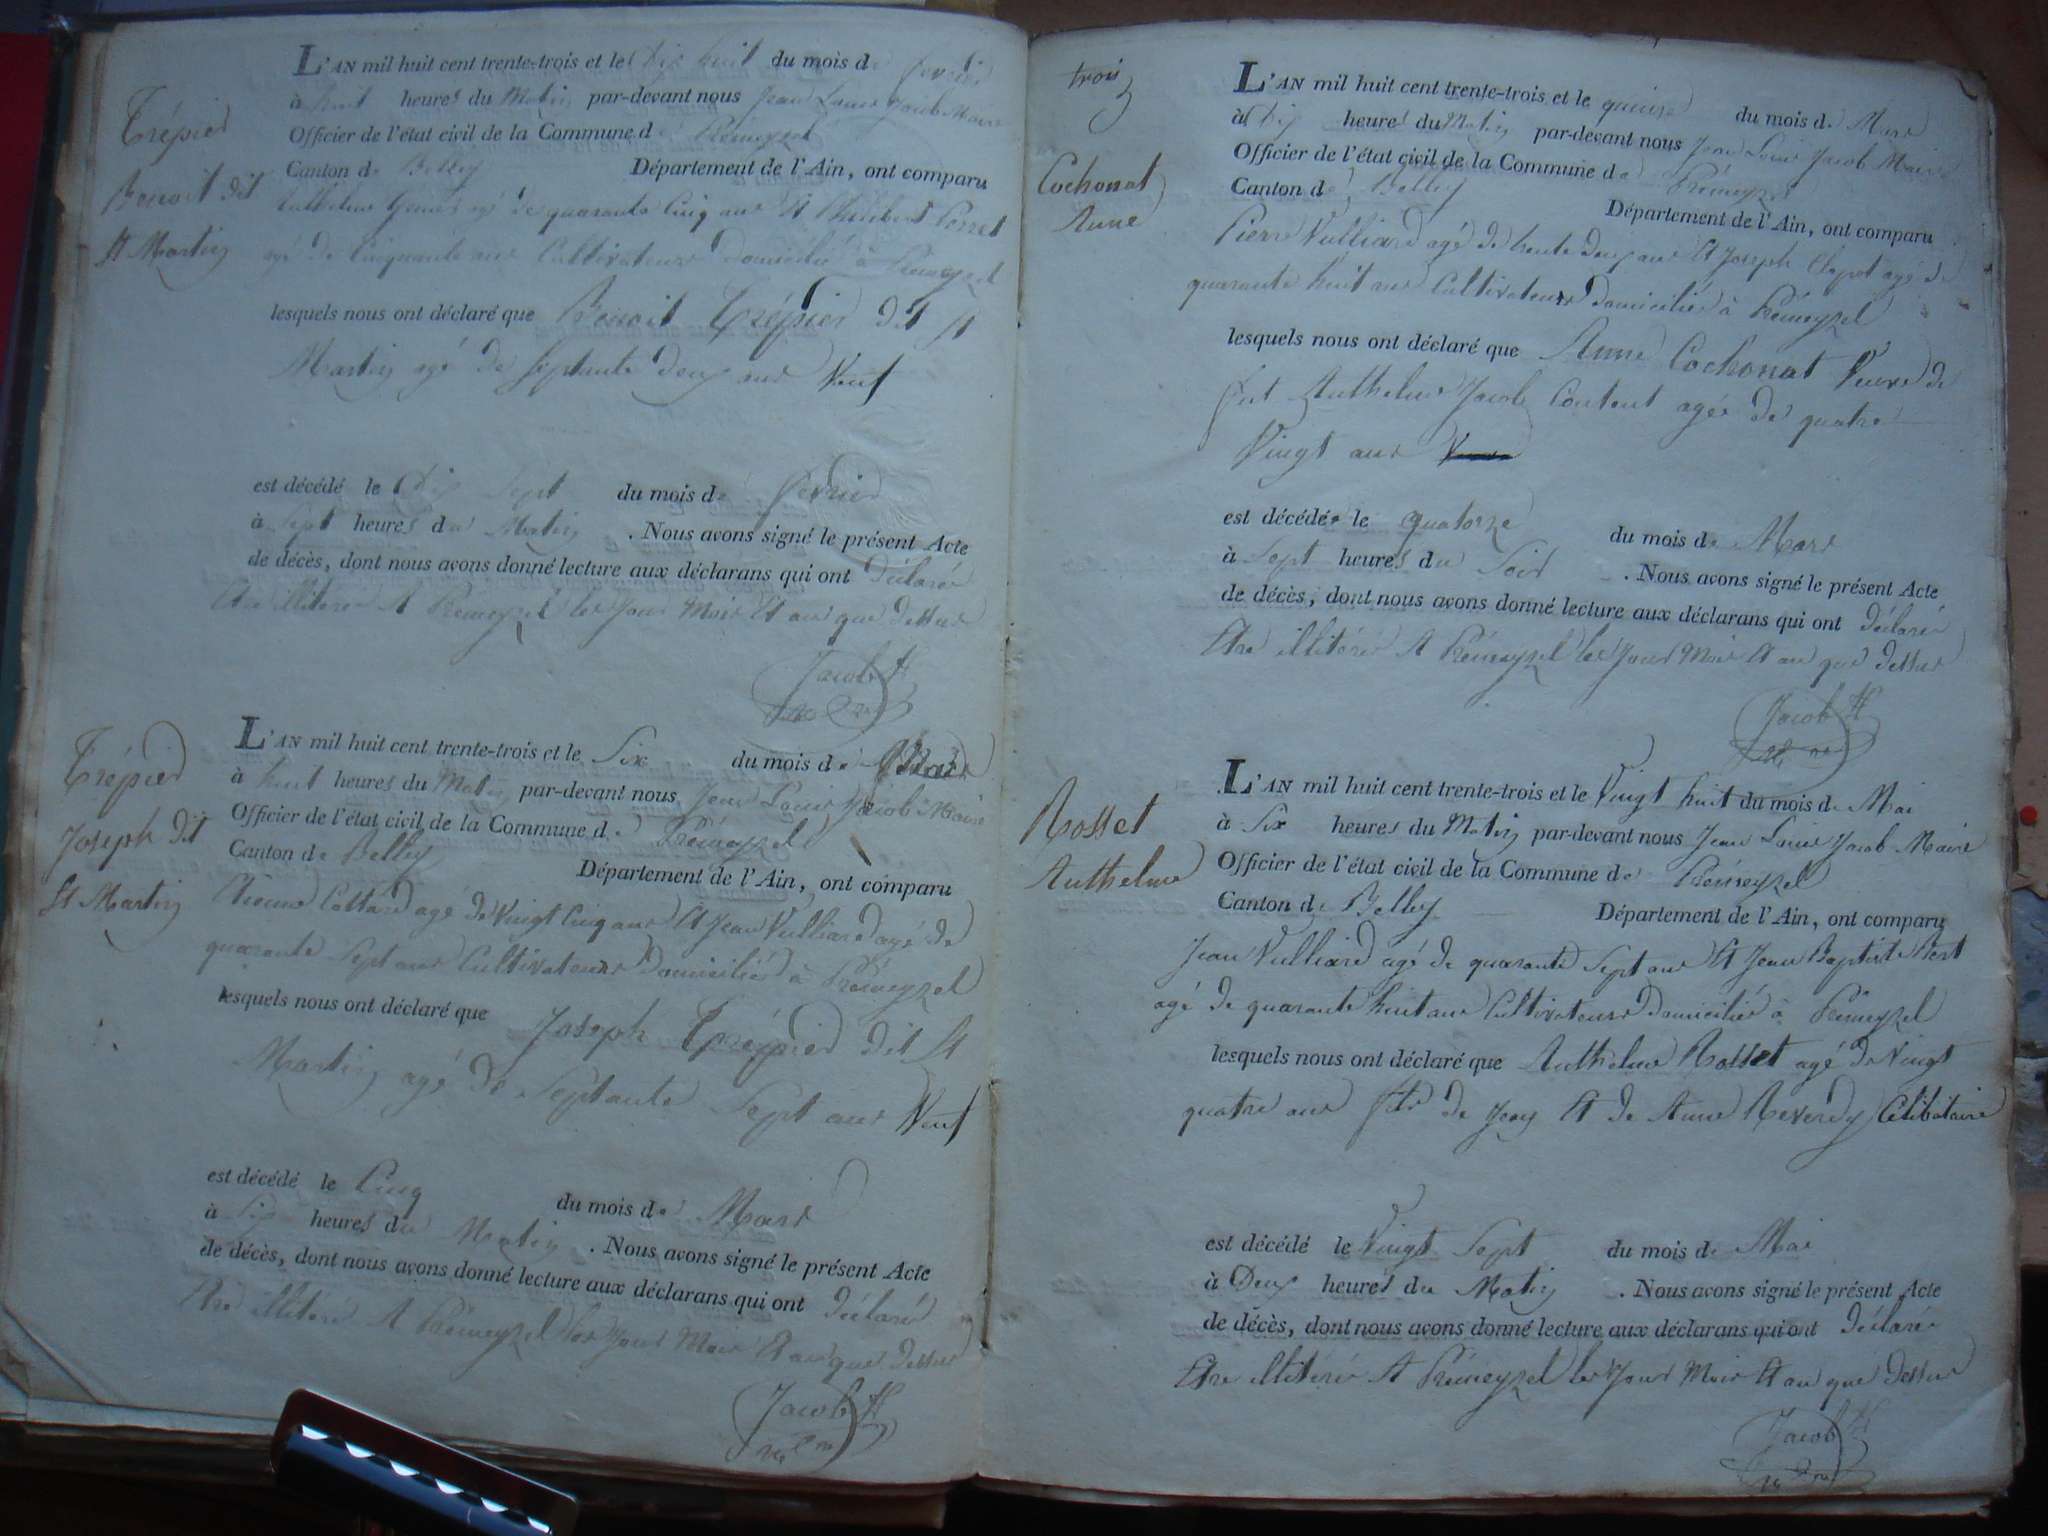 Trépied
Benoit dit
St Martin
L'AN mil huit cent trente-trois et le Dix huit du mois de fevrier
à huit heures du Matin par-devant nous Jean Louis Jacob Maire
Officier de l'état civil de la Commune de Prémeyzel
Canton de Belley Département de l'Ain, ont comparu
Anthelme agé de quarante Cinq ans Et Philibert Perret
agé de Cinquante ans Cultivateurs domicilié à Prémeyzel
lesquels nous ont déclaré que Benoit Trépied dit St
Martin agé de septante deux ans Veuf
est décédé le Dix Sept du mois de fevrier
à Sept heures du Matin . Nous avons signé le présent Acte
de décès, dont nous avons donné lecture aux déclarans qui ont déclaré
Etre illitéré A Prémeyzel les Jour Mois Et an que dessus
Jacob
Trépied
Joseph dit
St Martin
L'AN mil huit cent trente-trois et le Six du mois de Mars
à huit heures du Matin par-devant nous Jean Louis Jacob Maire
Officier de l'état civil de la Commune de Prémeyzel
Canton de Belley Département de l'Ain, ont comparu
Etienne Cottard agé de Vingt Cinq ans Et Jean Vulliard agé de
quarante Sept ans Cultivateurs Domiciliés à Prémeyzel
lesquels nous ont déclaré que Joseph Trépied dit St
Martin agé de Septante Sept ans Veuf
est décédé le Cinq du mois de Mars
à Six heures du Matin . Nous avons signé le présent Acte
de décès, dont nous avons donné lecture aux déclarans qui ont déclaré
Etre illitéré A Prémeyzel les Jour Mois Et an que dessus
Jacob
trois
Cochonat
Anne
L'AN mil huit cent trente-trois et le quinze du mois de Mars
à Dix heures du Matin par-devant nous Jean Louis Jacob Maire
Officier de l'état civil de la Commune de Prémeyzel
Canton de Belley Département de l'Ain, ont comparu
Pierre Vulliard agé de trente deux ans Et Joseph Chapot agé de
quarante huit ans Cultivateurs Domiciliés à Prémeyzel
lesquels nous ont déclaré que Anne Cochonat Veuve de
fut Anthelme Jacob Content agée de quatre
Vingt ans
est décédée le quatorze du mois de Mars
à Sept heures du Soir . Nous avons signé le présent Acte
de décès, dont nous avons donné lecture aux déclarans qui ont déclaré
Etre illitérés A Prémeyzel les Jour Mois Et an que dessus
Jacob
Rosset
Anthelme
L'AN mil huit cent trente-trois et le Vingt huit du mois de Mai
à Six heures du Matin par-devant nous Jean Louis Jacob Maire
Officier de l'état civil de la Commune de Prémeyzel
Canton de Belley Département de l'Ain, ont comparu
Jean Vulliard agé de quarante Sept ans Et Jean Baptiste
agé de quarante huit ans Cultivateurs Domiciliés à Prémeyzel
lesquels nous ont déclaré que Anthelme Rosset agé de Vingt
quatre ans fils de Jean Et de Anne Reverdy Célibataire
est décédé le Vingt Sept du mois de Mai
à Deux heures du Matin . Nous avons signé le présent Acte
de décès, dont nous avons donné lecture aux déclarans qui ont déclaré
Etre illitérés A Prémeyzel les Jour Mois Et an que dessus
Jacob